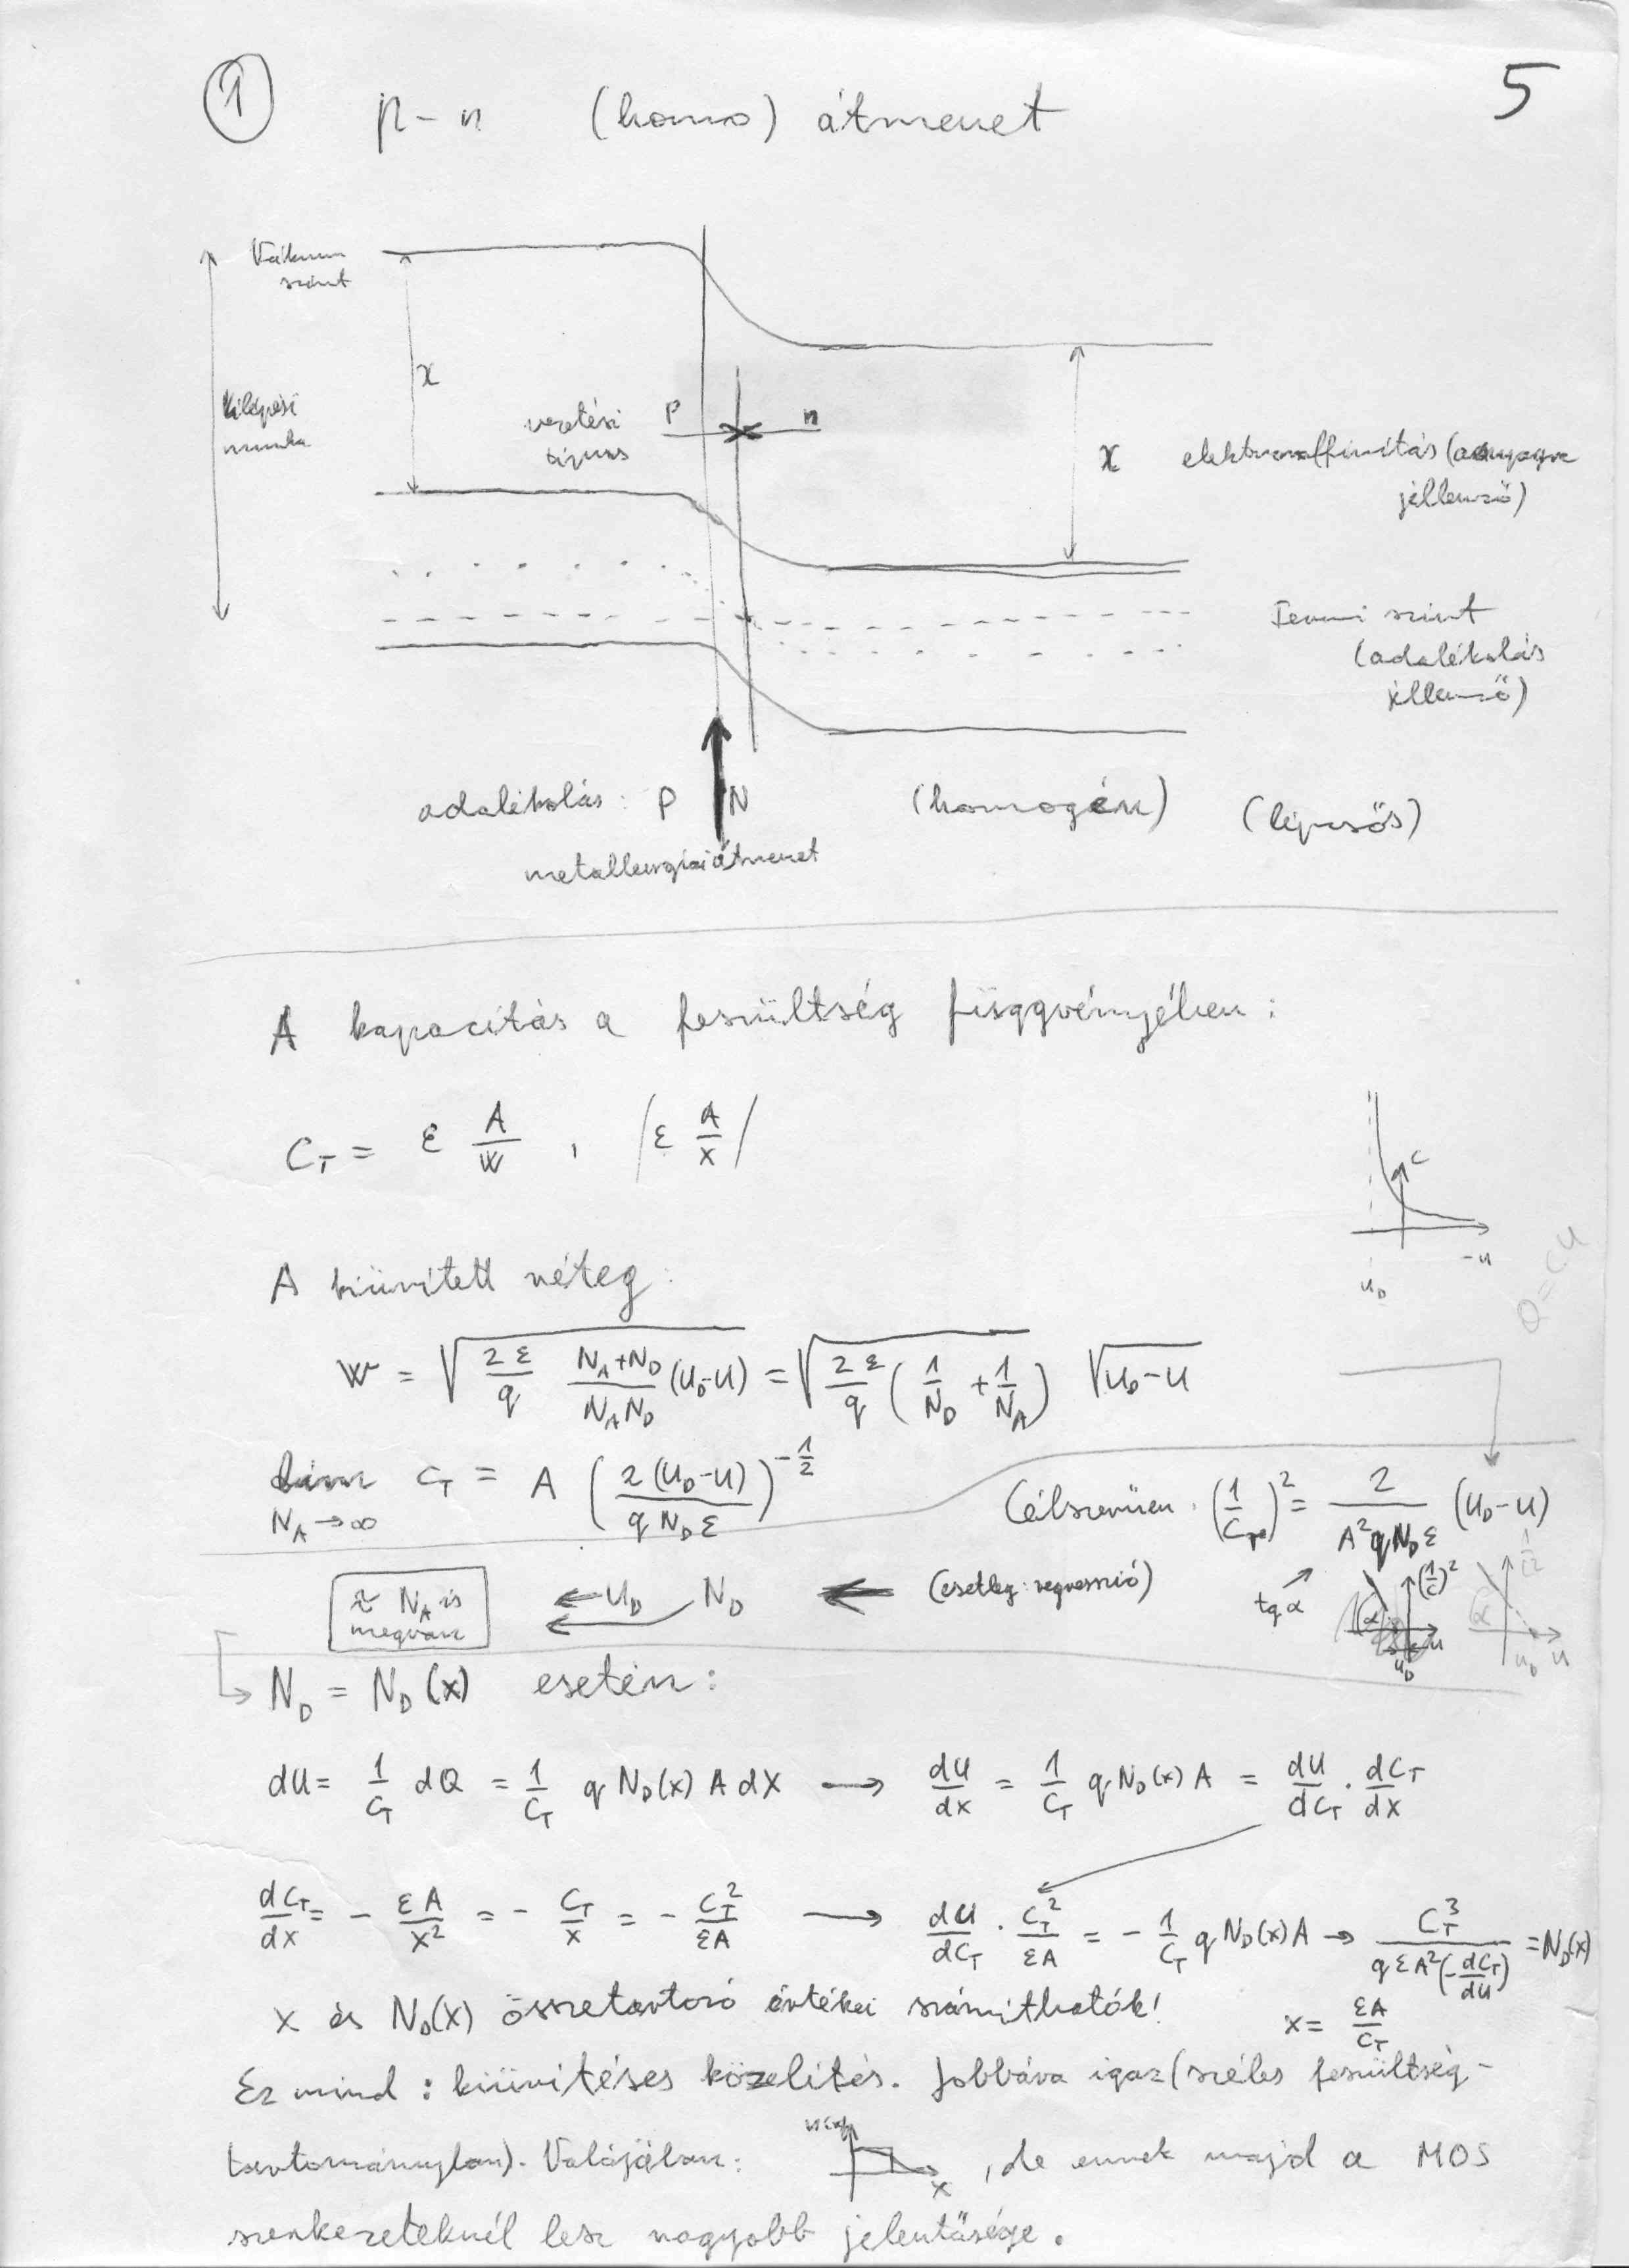 1
5
p-n (homo) átmenet
Vákuum
szint
χ
Kilépési
munka
vezetési
típus
p
n
χ elektronaffinitás (anyagra
jellemző)
Fermi szint
(adalékolás
jellemző)
adalékolás: P N (homogén) (lépcsős)
metallurgiai átmenet
A kapacitás a feszültség függvényében:
C_T = ε A/W , /ε A/x/
C
-U
U_D
Q=CU
A kiürített réteg:
W = √(2ε/q (N_A+N_D)/(N_A N_D) (U_D-U)) = √(2ε/q (1/N_D + 1/N_A)) √(U_D-U)
lim C_T = A (2(U_D-U)/(q N_D ε))^(-1/2)
N_A→∞
Célszerűen: (1/C_T)² = 2/(A² q N_D ε) (U_D-U)
N_A is
megvan
← U_D N_D ← (esetleg: regresszió)
tg α
α
(1/C)²
U
U_D
α
U_D U
N_D = N_D(x) esetén:
dU = 1/C_T dQ = 1/C_T q N_D(x) A dX → dU/dx = 1/C_T q N_D(x) A = dU/dC_T · dC_T/dX
dC_T/dx = - εA/x² = - C_T/x = - C_T²/εA → dU/dC_T · C_T²/εA = - 1/C_T q N_D(x) A → C_T³/(q ε A² (-dC_T/dU)) = N_D(x)
x és N_D(x) összetartozó értékei számíthatók! x = εA/C_T
Ez mind: kiürítéses közelítés. Jobbára igaz (széles feszültség-
tartományban). Valójában: x , de ennek majd a MOS
szerkezeteknél lesz nagyobb jelentősége.